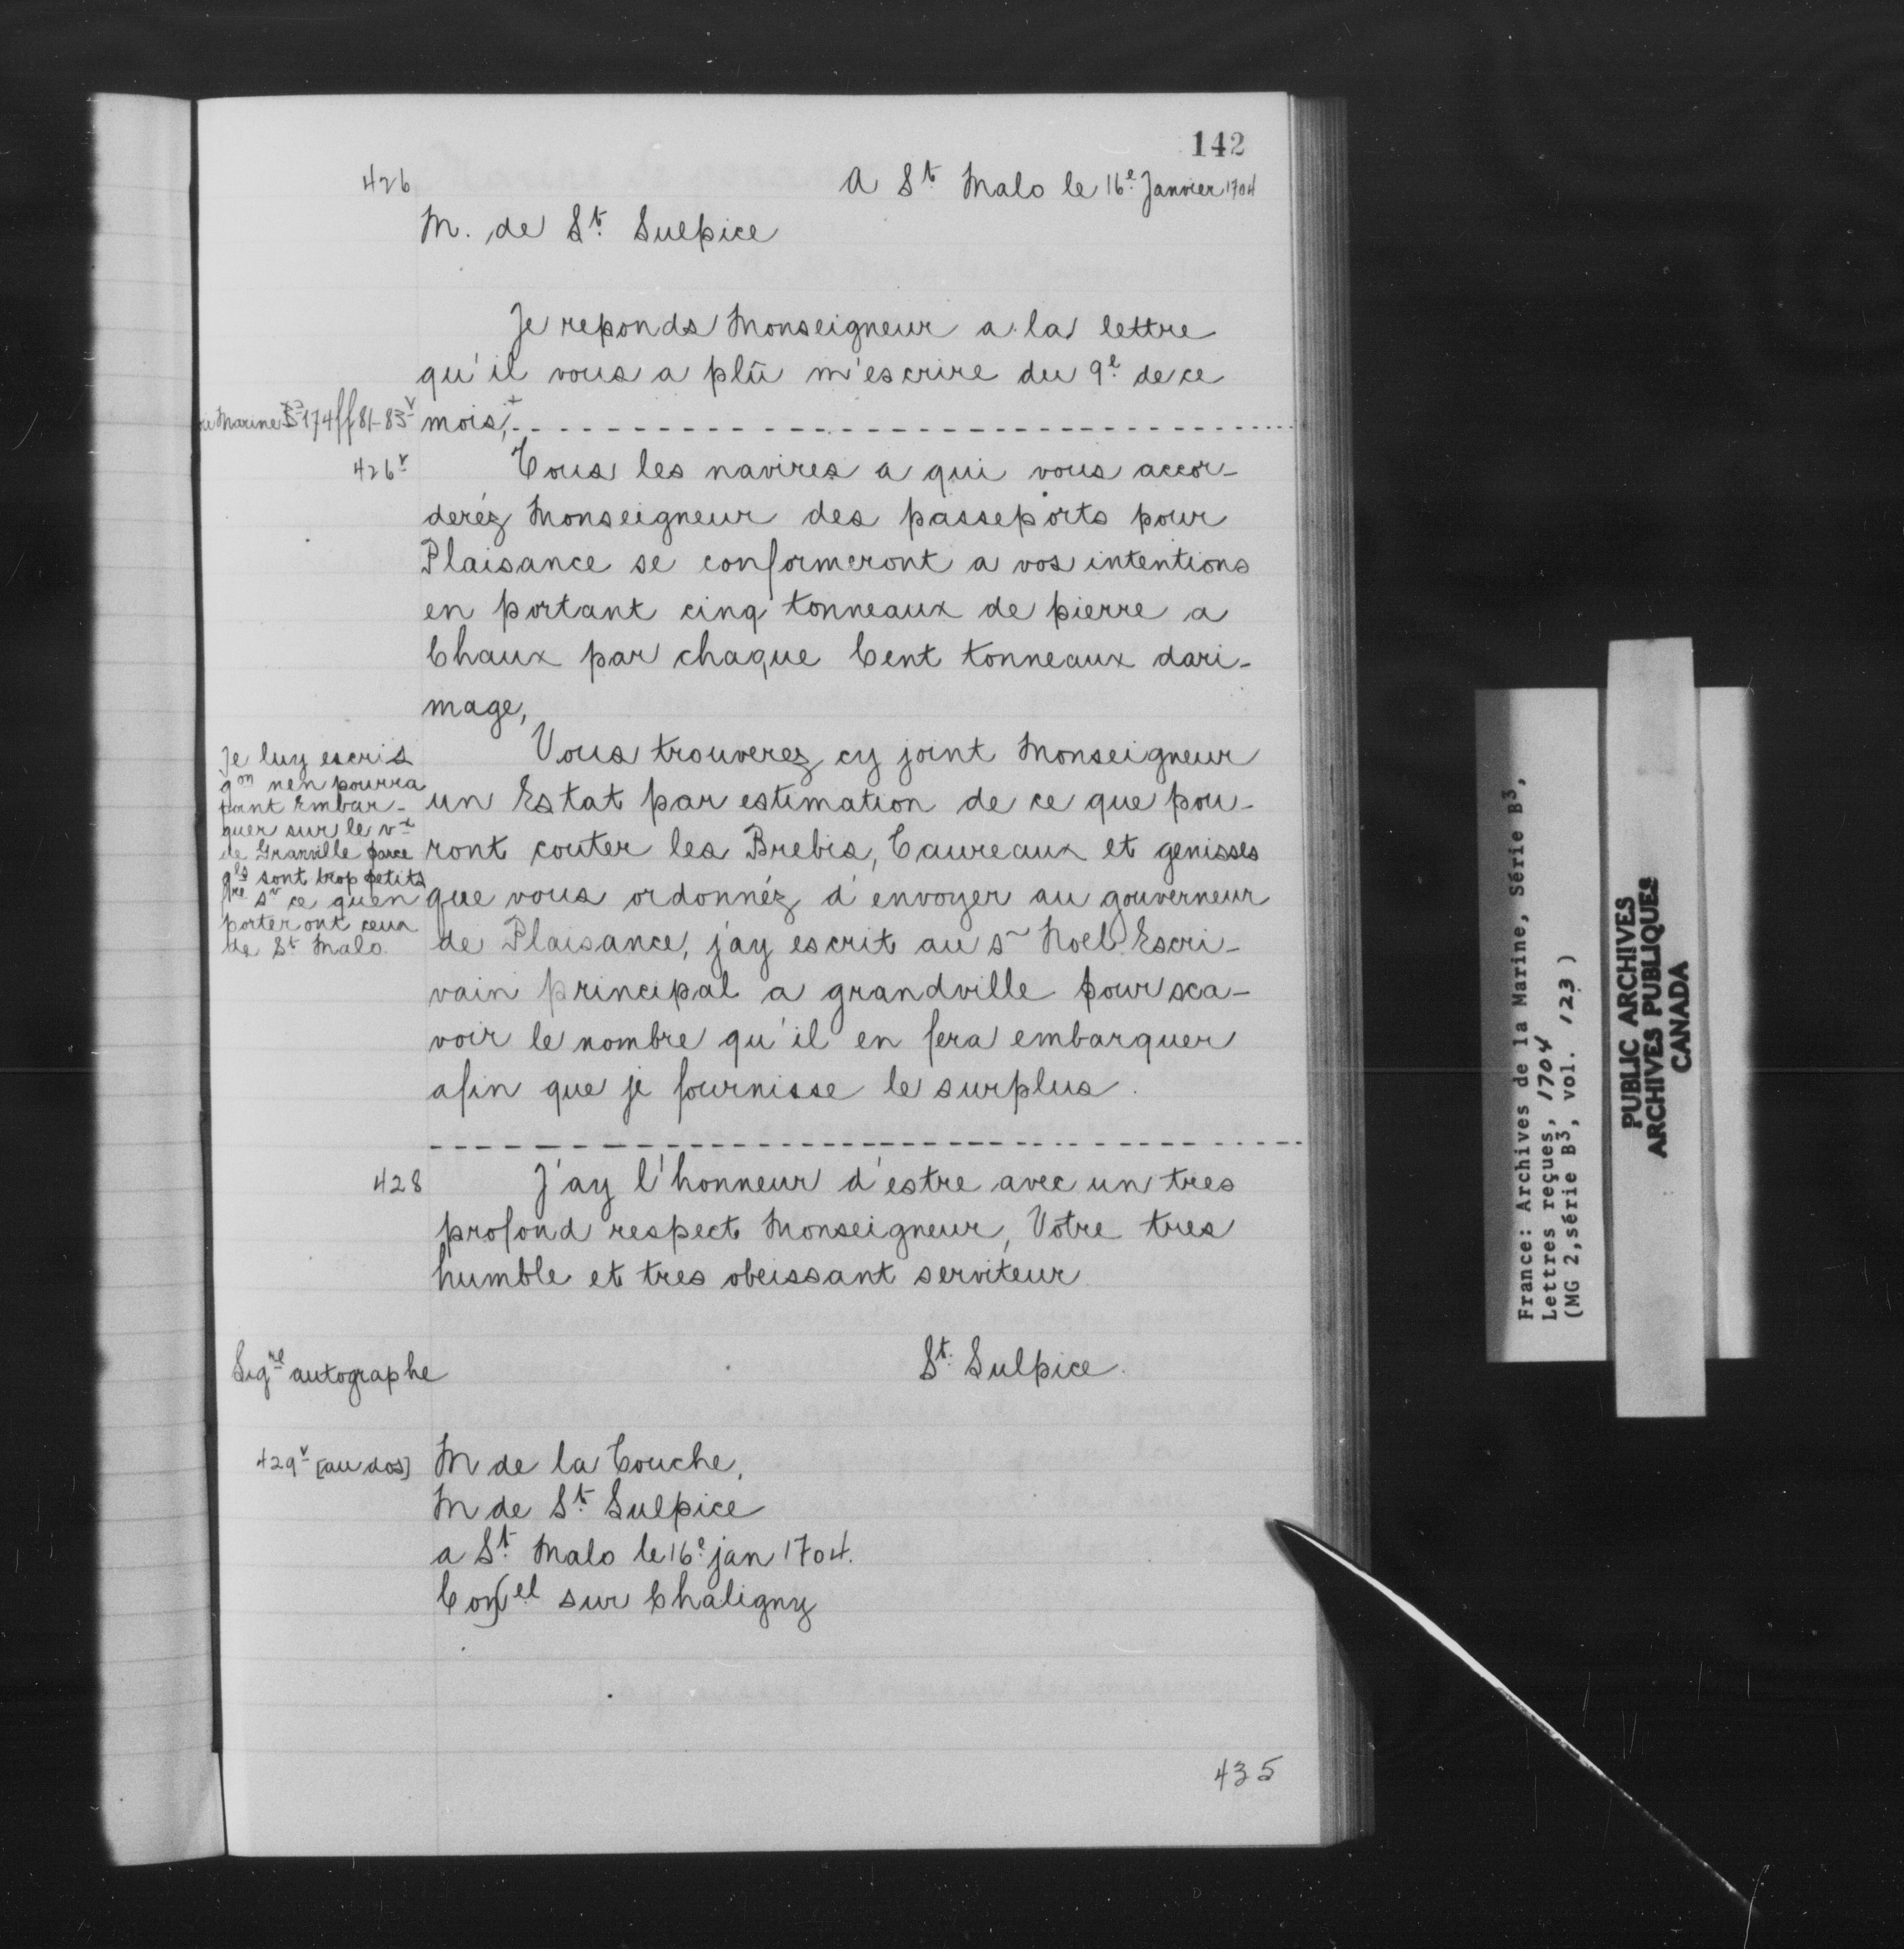 142
426
A St. Malo le 16e. Janvier 1704
M. de St. Sulpice
Je reponds Monseigneur a la lettre
qu'il vous a plû m'escrire du 9e. de ce
Marine B3 174 ff 81-83v
mois,+
426v
Tous les navires a qui vous accor-
deréz Monseigneur des passeports pour
Plaisance se conformeront a vos intentions
en portant cinq tonneaux de pierre a
Chaux par chaque Cent tonneaux dari-
mage,
Vous trouverez cy joint Monseigneur
un Estat par estimation de ce que pou-
ront couter les Brebis, Taureaux et genisses
que vous ordonnéz d'envoyer au gouverneur
de Plaisance, j'ay escrit au sr Noel Escri-
vain principal a grandville pour sca-
voir le nombre qu'il en fera embarquer
afin que je fournisse le surplus.
Je luy escris
qon nen pourra
point Embar-
quer sur le vx
de Granville parce
qls sont trop petits
sr ce quen
porteront ceux
de St Malo.
428
J'ay l'honneur d'estre avec un tres
profond respect Monseigneur, Votre tres
humble et tres obeissant serviteur
St. Sulpice.
Signe autographe
429v [au dos]
M de la Touche,
M de St. Sulpice
a St. Malo le 16e. jan 1704.
sur Chaligny
435
France: Archives de la Marine, Série B3,
Lettres reçues, 1704
(MG 2, série B3, vol. 123)
PUBLIC ARCHIVES
ARCHIVES PUBLIQUES
CANADA